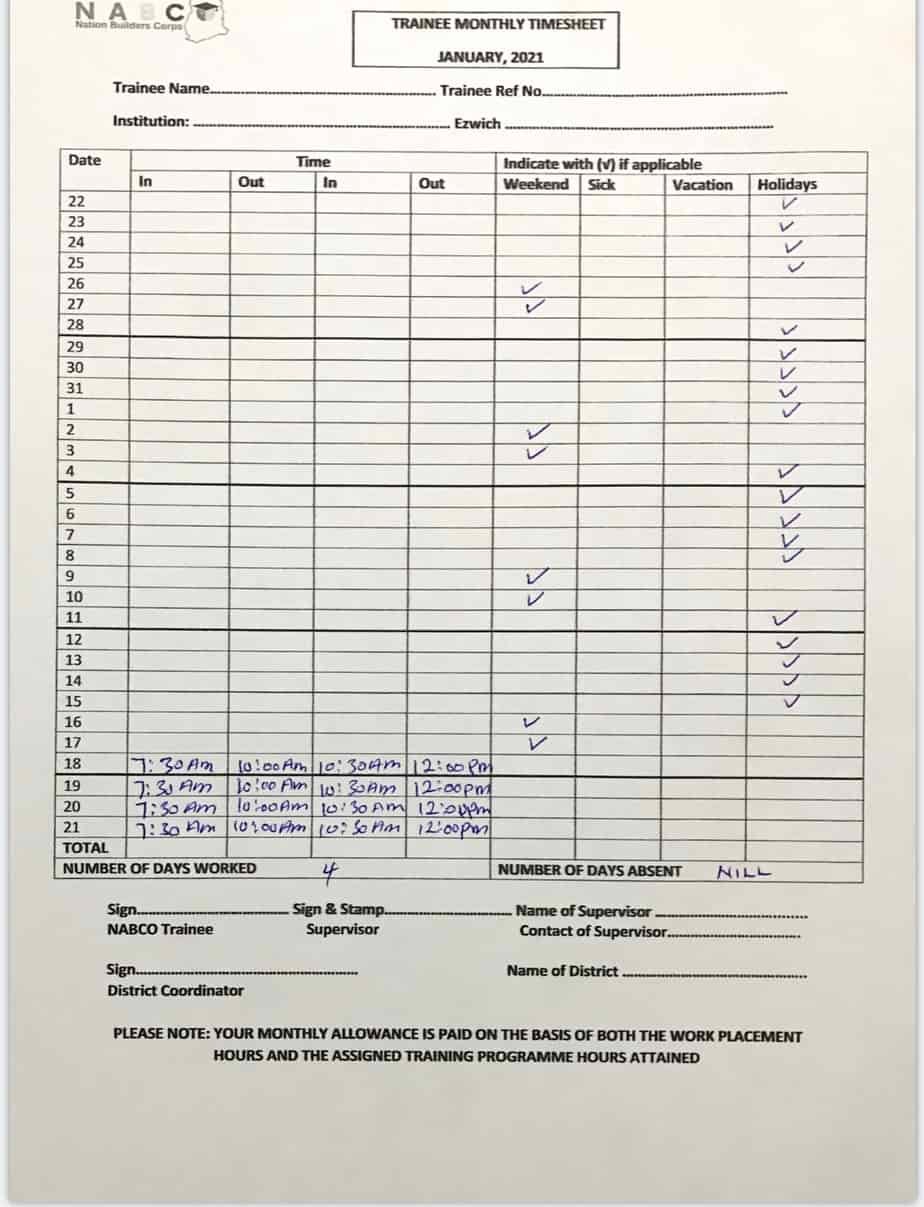 NABC
Nation Builders Corps
TRAINEE MONTHLY TIMESHEET
JANUARY, 2021
Trainee Name.......................... Trainee Ref No..........................
Institution: .......................... Ezwich ..........................
Date Time Indicate with (√) if applicable
In Out In Out Weekend Sick Vacation Holidays
22 ✓
23 ✓
24 ✓
25 ✓
26 ✓
27 ✓
28 ✓
29 ✓
30 ✓
31 ✓
1 ✓
2 ✓
3 ✓
4 ✓
5 ✓
6 ✓
7 ✓
8 ✓
9 ✓
10 ✓
11 ✓
12 ✓
13 ✓
14 ✓
15 ✓
16 ✓
17 ✓
18 7:30 Am 10:00 Am 10:30 Am 12:00 Pm
19 7:30 Am 10:00 Am 10:30 Am 12:00 pm
20 7:30 Am 10:00 Am 10:30 Am 12:00 pm
21 7:30 Am 10:00 Am 10:30 Am 12:00 pm
TOTAL
NUMBER OF DAYS WORKED 4 NUMBER OF DAYS ABSENT NILL
Sign.......................... Sign & Stamp.......................... Name of Supervisor ..........................
NABCO Trainee Supervisor Contact of Supervisor..........................
Sign.......................... Name of District ..........................
District Coordinator
PLEASE NOTE: YOUR MONTHLY ALLOWANCE IS PAID ON THE BASIS OF BOTH THE WORK PLACEMENT
HOURS AND THE ASSIGNED TRAINING PROGRAMME HOURS ATTAINED